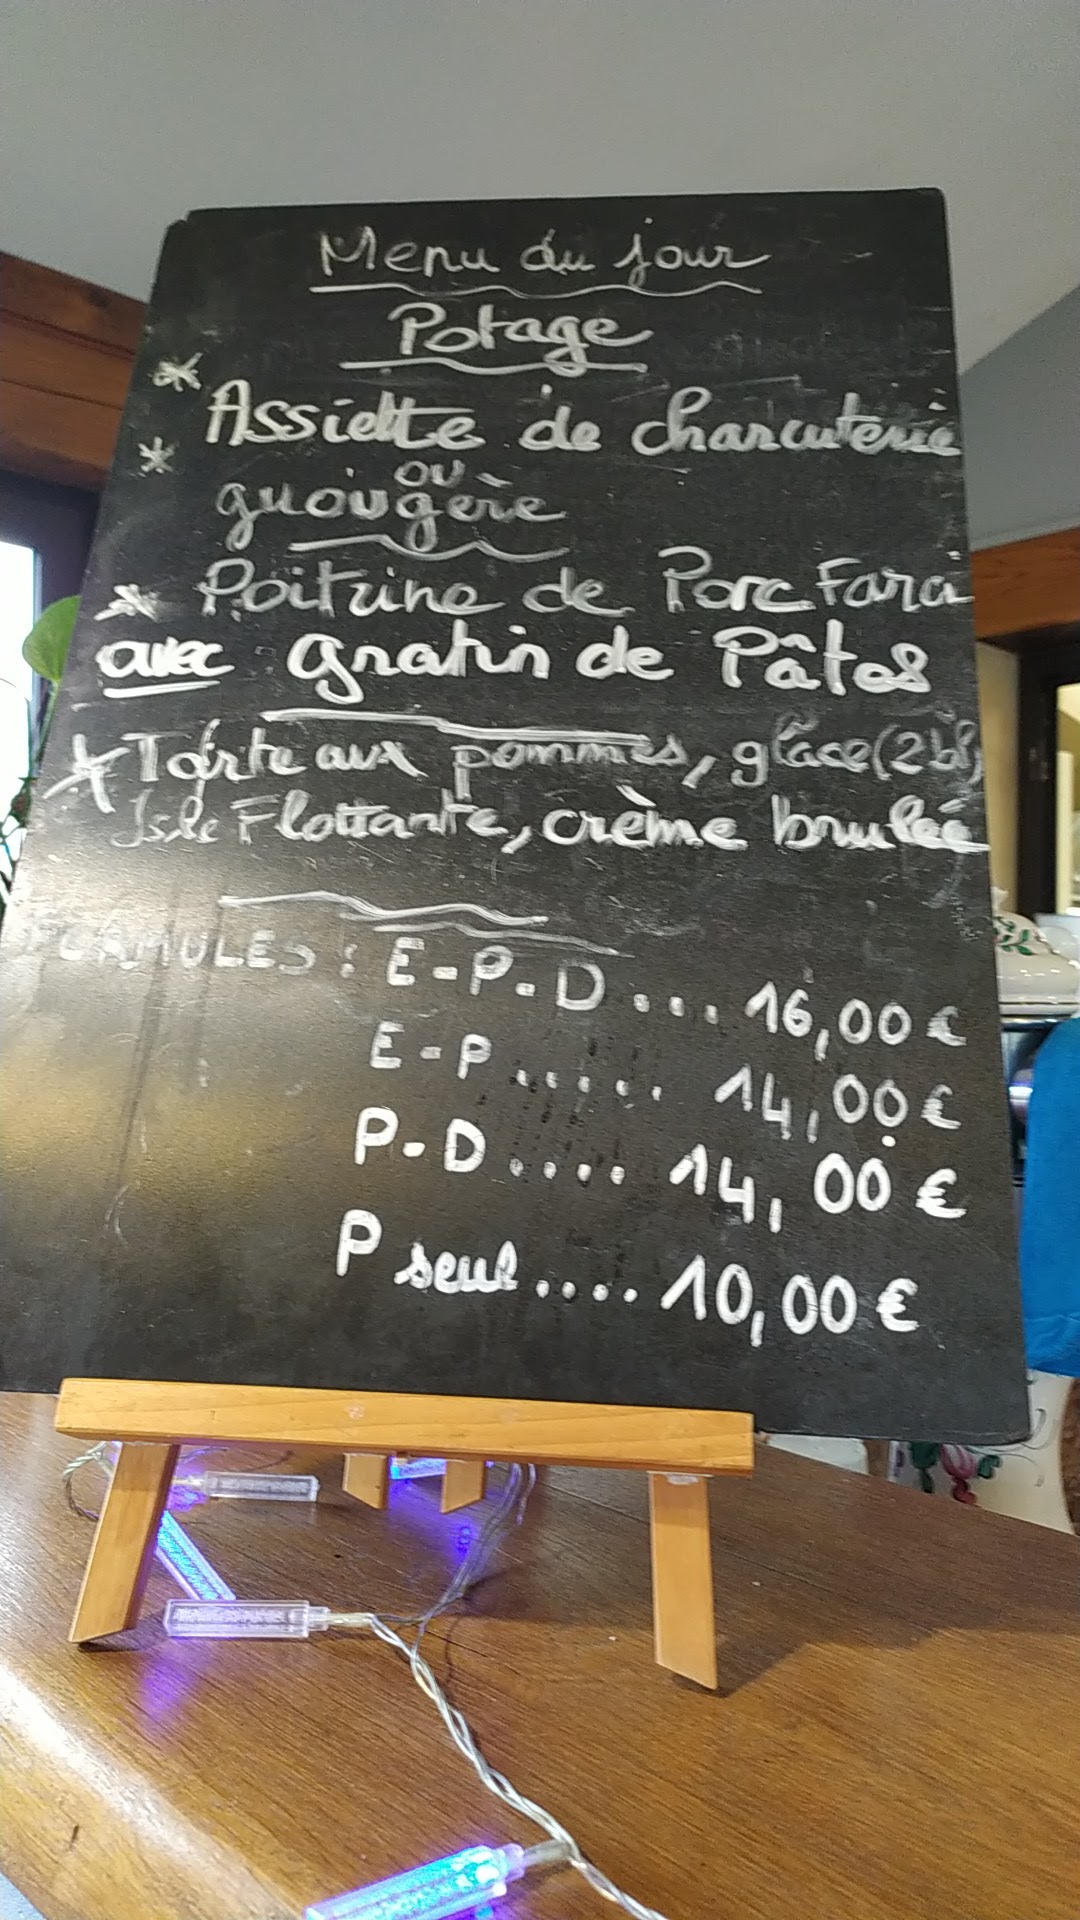 Menu du jour
Potage
* Assiette de charcuterie
ou
* guougère
* Poitrine de Porc Farci
avec gratin de Pâtes
* Tarte aux pommes, glace (2 bl)
Isle Flottante, crème brulée
FORMULES : E-P-D .... 16,00 €
E-P ..... 14,00 €
P-D .... 14,00 €
P seul .... 10,00 €